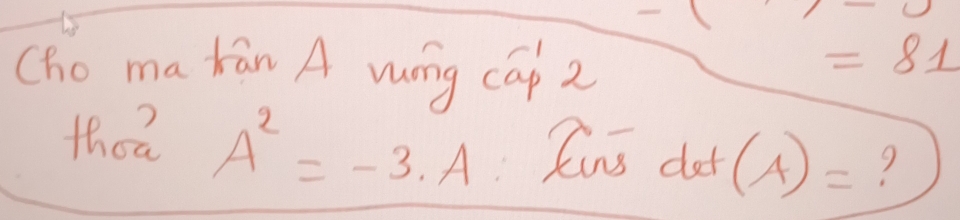 = 81
Cho ma trận A vuông cấp 2
thoả A² = -3.A : det(A) = ?